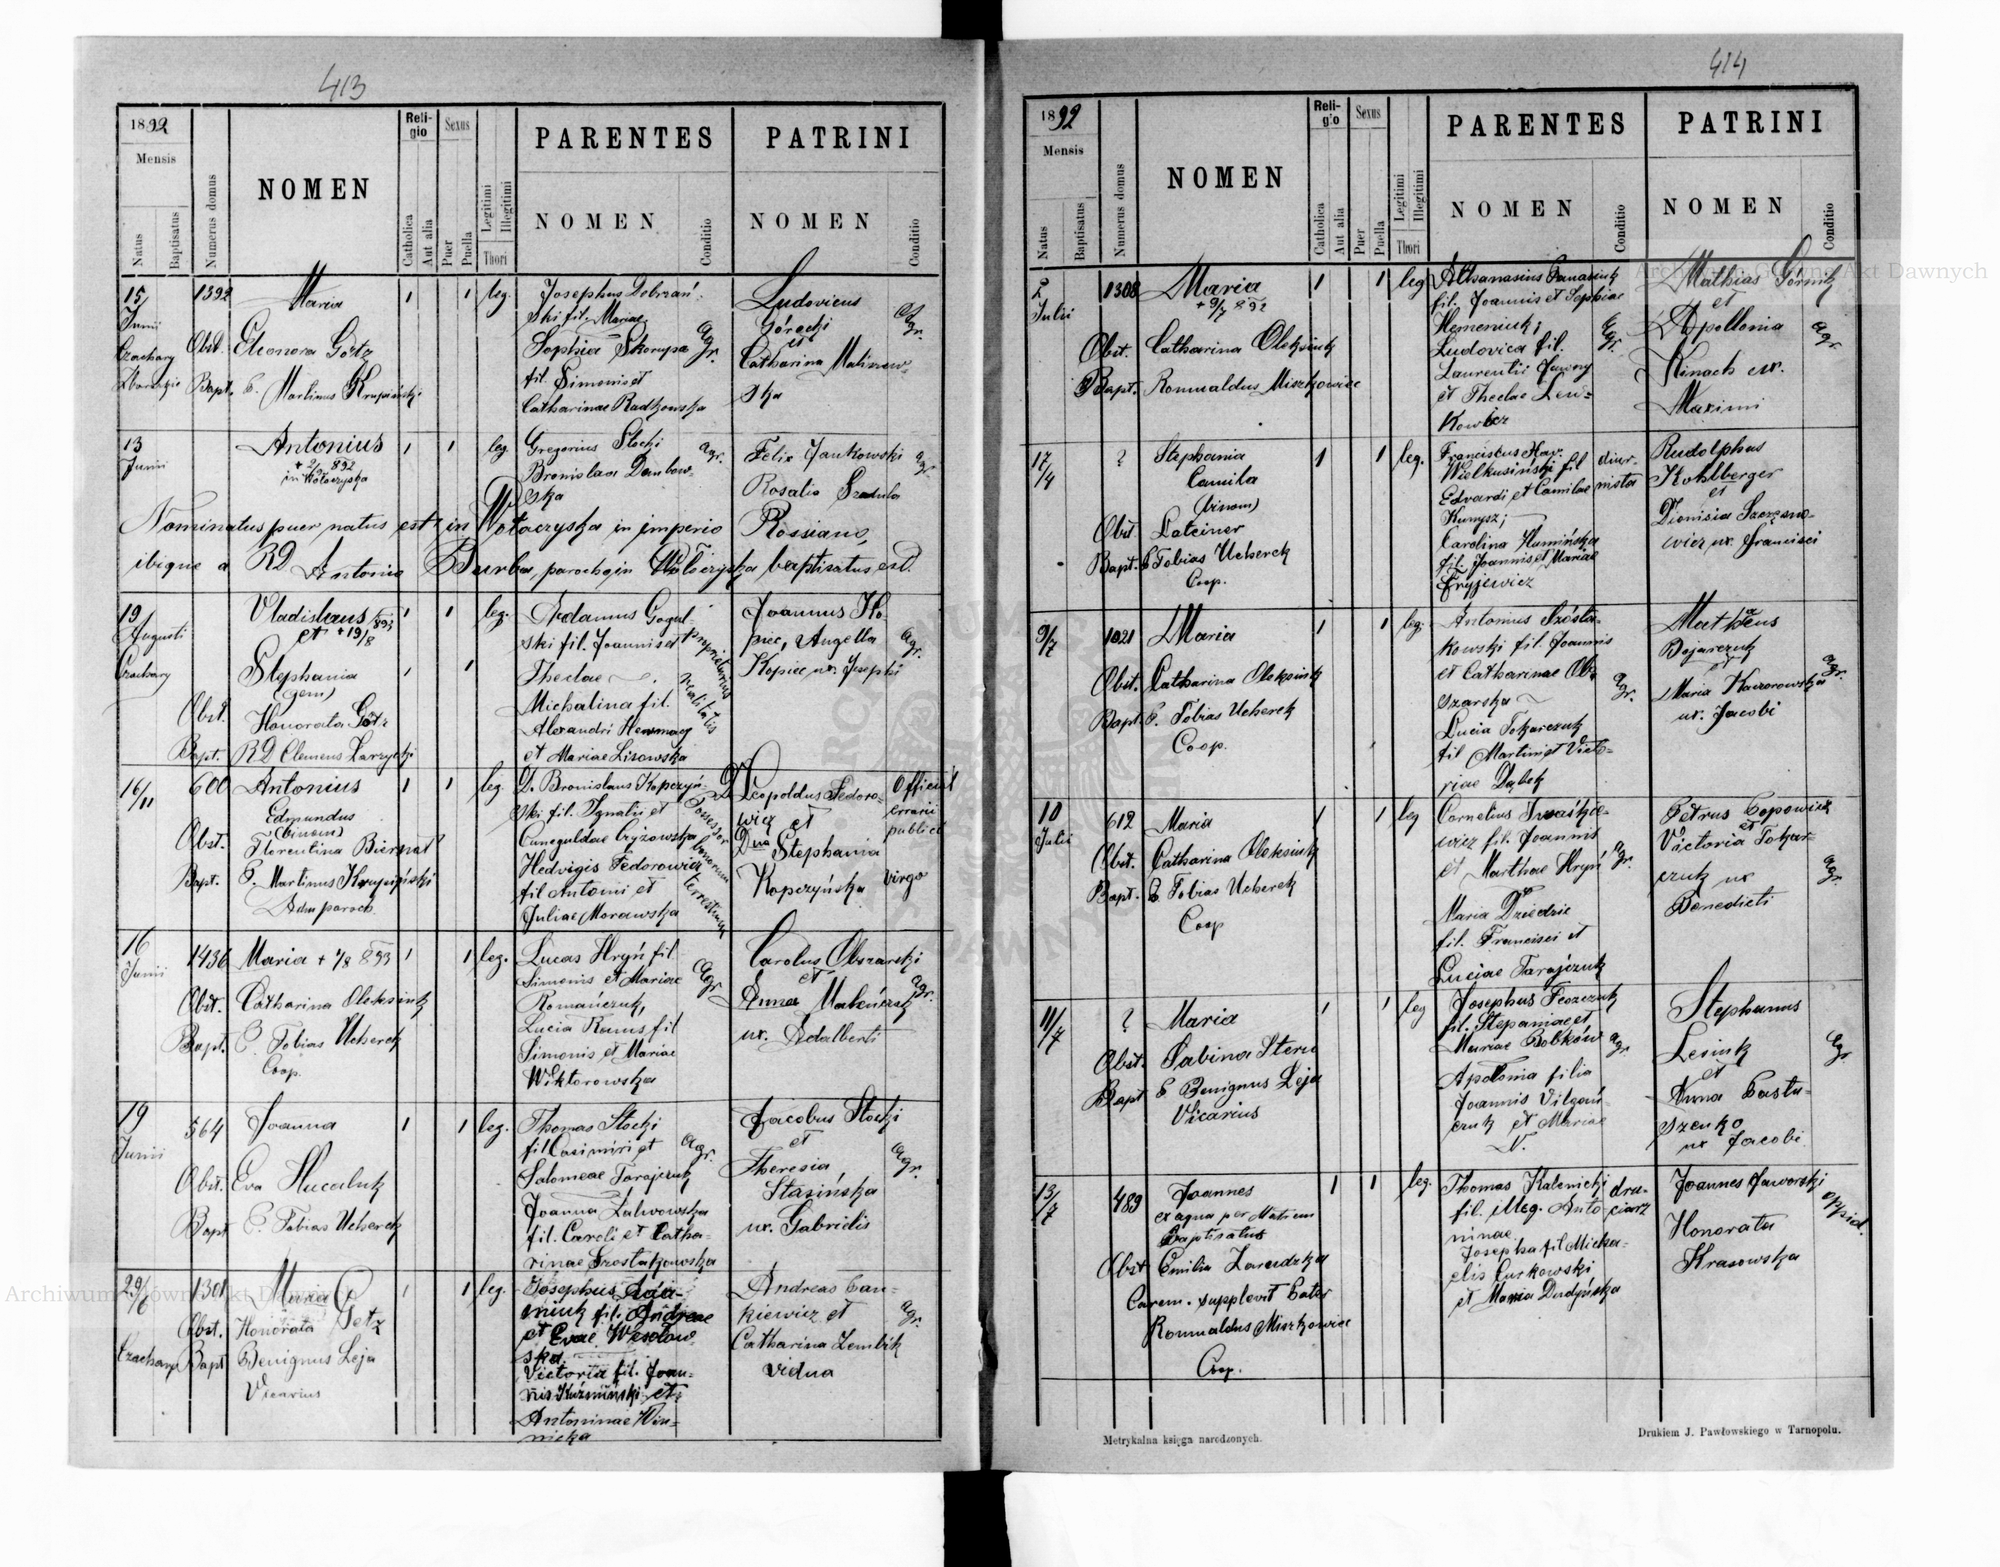 413
1892
Mensis
Natus
Baptisatus
Numerus domus
NOMEN
Religio
Catholica
Aut alia
Sexus
Puer
Puella
Legitimi
Illegitimi
Thori
PARENTES
NOMEN
Conditio
PATRINI
NOMEN
Conditio
15/ Junii 1392 Maria 1 1 leg.
Czachary
Obst. Eleonora Götz
Bapt. P. Martinus Krupiński
Josephus Dobrzań-
ski fil. Mariae
Sophia Skorupa Agr.
fil. Simonis et
Catharinae Radkowska
Ludovicus
Górecki Agr.
et
Catharina Malinow-
ska
13 Junii Antonius 1 1 leg
in Wołoczyska
Gregorius Stocki agr.
Bronislava Dembow-
ska
Felix Jankowski agr.
Rosalia Szadula
Nominatus puer natus est in Wołoczyska in imperio Rossiano,
ibique a RD Antonio Burba, parocho in Wołoczyska baptisatus est.
19 Augusti Vladislaus 1 1 leg.
et + 19/8 893
Czachary
Stephania 1 1
(gem)
Obst. Honorata Götz
Bapt. RD Clemens Zarzycki
Adamus Gogul-
ski fil. Joannis et
Theclae
Michalina fil.
Alexandri
et Mariae Lisowska
proprietarius realitatis
Joannes Ko-
piec, Angella agr.
Kopiec ux. Josephi
16/11 600 Antonius 1 1 leg.
Edmundus
(binom)
Obst. Florentina Biernat
Bapt. P. Martinus Krupiński
Adm paroch.
D. Bronislaus Kopczyń-
ski fil. Ignatii et
Cunegundae Czyżowska
Hedvigis Fedorowicz
fil Antonii et
Juliae Morawska
Possessor bonorum terrestrium
D. Leopoldus Fedoro-
wicz et
Dna Stephania
Kopczyńska
Official
errarii
publici
virgo
16 Junii 1436 Maria + 4/8 893 1 1 leg.
Obst. Catharina Oleksiuk
Bapt. P. Tobias Ucherek
Coop.
Lucas Hryń fil
Simonis et Mariae Agr.
Romańczuk,
Lucia Romus fil
Simonis et Mariae
Wiktorowska
Carolus Obszarski
et
Anna agr.
ux. Adalberti
19 Junii 564 Joanna 1 1 leg.
Obst. Eva Hucaluk
Bapt P. Tobias Ucherek
Thomas Stocki
fil Casimiri et Agr.
Salomeae Tarajczuk
Joanna Zalwowska
fil. Caroli et Catha-
rinae Szostakowska
Jacobus Stocki
et
Theresia, Agr.
Stasińska
ux. Gabrielis
29/6 1301 Maria 1 1 leg.
Obst. Honorata Getz
Czachary Bapt Benignus Leja
Vicarius
Josephus Ada-
miuk fil. Andreae
et Evae Wesołow-
ska
Victoria fil. Joan-
nis Kuźmiński et
Antoninae Win-
nicka
Andreas Pan-
kiewicz et agr.
Catharina Zembik
vidua
414
1892
Mensis
Natus
Baptisatus
Numerus domus
NOMEN
Religio
Catholica
Aut alia
Sexus
Puer
Puella
Legitimi
Illegitimi
Thori
PARENTES
NOMEN
Conditio
PATRINI
NOMEN
Conditio
2 Julii 1308 Maria 1 1 leg
+ 9/7 892
Obst. Catharina Oleksiuk
Bapt. Romualdus Miszkowicz
Athanasius Panasiuk
fil. Joannis et Sophiae
Hemeniuk; Agr.
Ludovica fil.
Laurentii
et Theclae Lew-
kowicz
Mathias Górnik
et
Apollonia agr.
Kinach ux.
Maximi
17/4 ? Stephania 1 1 leg.
Camila
(binom)
Obst. Lateiner
Bapt. P Tobias Ucherek
Coop.
Franciscus Xav.
Wielkusiński fil
Edvardi et Camilae
Kunysz;
Carolina Humińska
fil. Joannis et Mariae
Fryjewicz
diur-
nista
Rudolphus
Kohlberger
et
Dionisia Szczęsno-
wicz ux. Francisci
9/7 1021 Maria 1 1 leg.
Obst. Catharina Oleksiuk
Bapt. P. Tobias Ucherek
Coop.
Antonius Szósta-
kowski fil. Joannis
et Catharinae Ob-
szarska agr.
Lucia Tokarczuk
fil Martini et Victo-
riae Dąbek
Mathäus
Bojarczuk
et
Maria Kaczorowska agr.
ux. Jacobi
10 Julii 612 Maria 1 1 leg
Obst. Catharina Oleksiuk
Bapt. P. Tobias Ucherek
Coop
Cornelius Iwaśkie-
wicz fil. Joannis
et Marthae Hryń agr.
Maria Dziedzic
fil. Francisci et
Luciae Tarajczuk
Petrus Popowicz
et
Victoria Tokar-
czuk ux agr.
Benedicti
11/7 ? Maria 1 1 leg
Obst. Sabina Stern
Bapt P Benignus Leja
Vicarius
Josephus
fil. Stepaniae et
Mariae Bobków agr.
Apollonia filia
Joannis
et Mariae
N.
Stephanus
Lesiuk agr.
et
Anna Pastu-
szenko
ux Jacobi
13/7 489 Joannes 1 1 leg.
ex aqua per Matrem
Baptisatus
Obst Emilia Zarudzka
Carem. supplevit Pater
Romualdus Miszkowicz
Coop.
Thomas Kalenicki
fil. illeg. Anto-
ninae
Josepha fil Micha-
elis Curkowski
et Maria Dudyńska
dru-
ciarz
Joannes Jaworski
Honorata oppid.
Krasowska
Metrykalna księga narodzonych.
Drukiem J. Pawłowskiego w Tarnopolu.
Archiwum Główne Akt Dawnych
Archiwum Główne Akt Dawnych